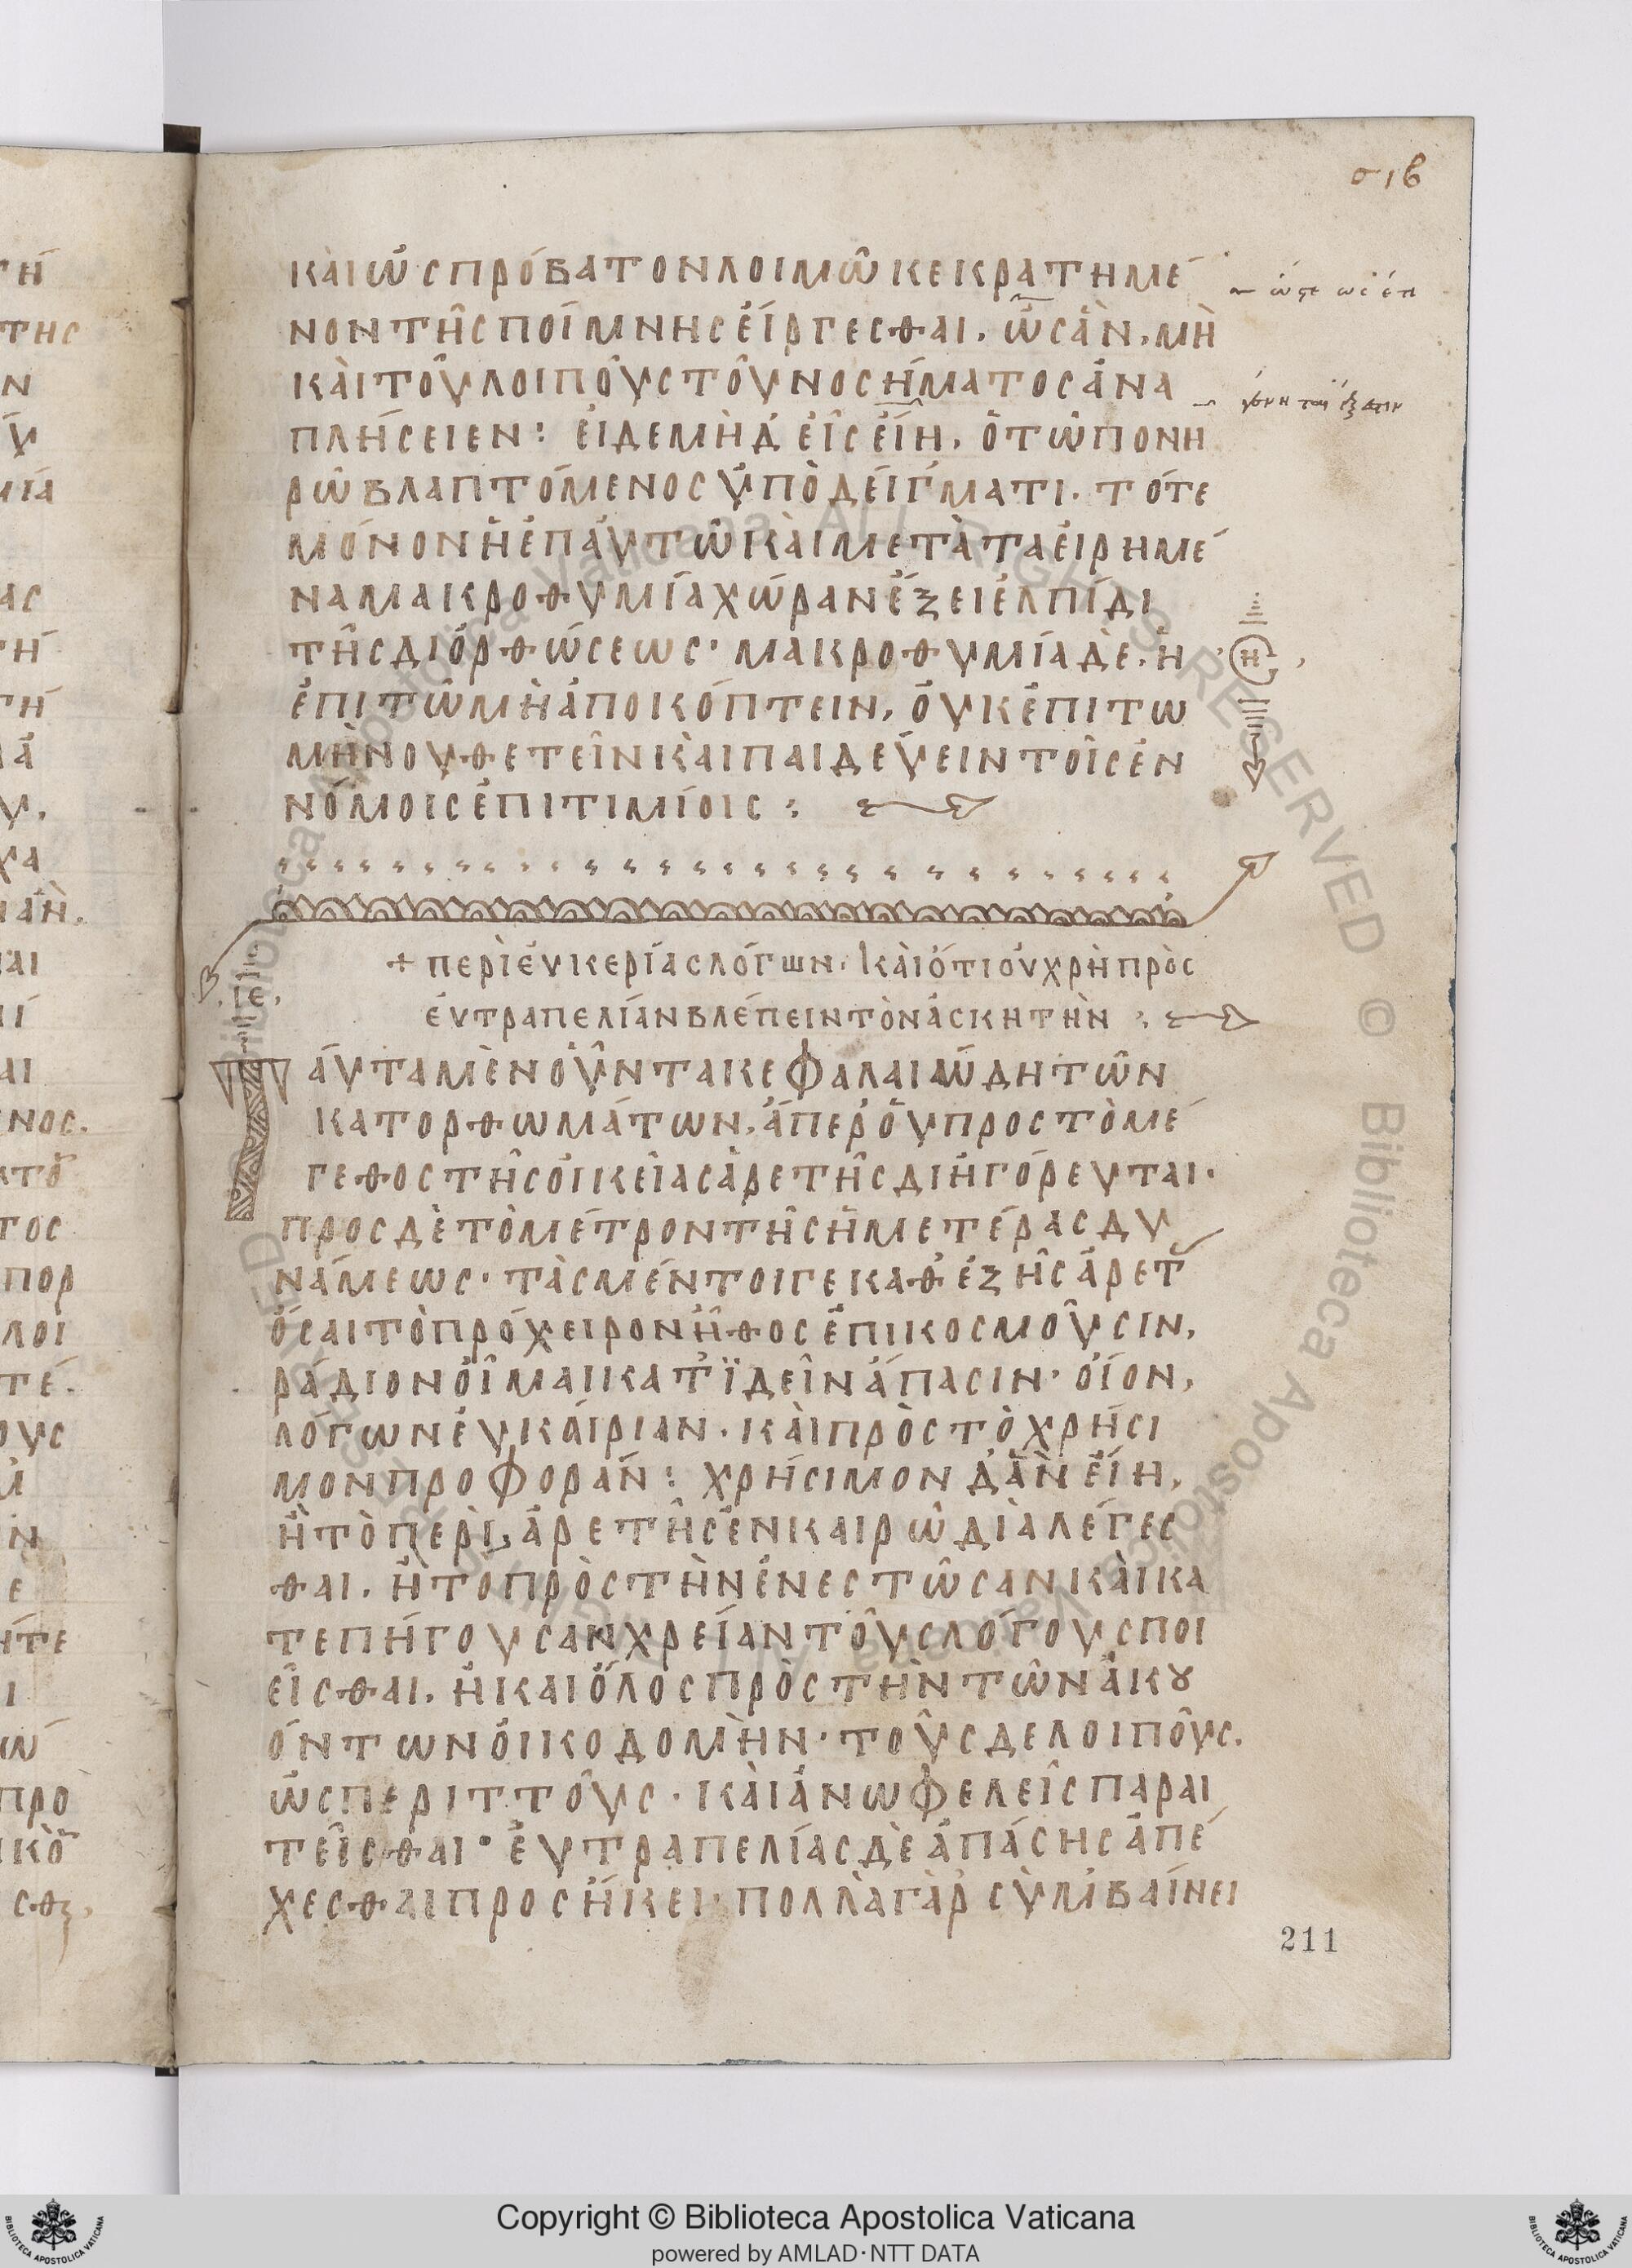 σιβ
ΚΑῚ ὩΣ ΠΡΌΒΑΤΟΝ ΛΟΙΜΩ͂ ΚΕΚΡΑΤΗΜΈ
ΝΟΝ ΤΗ͂Σ ΠΟΊΜΝΗΣ ἘΊΡΓΕΣΘΑΙ, ὩΣ ἊΝ, ΜῊ
ΚΑῚ ΤΟΥ͂ ΛΟΙΠΟΥ͂Σ ΤΟΥ͂ ΝΟΣΉΜΑΤΟΣ ἈΝΑ
ΠΛΉΣΕΙΕΝ : ἘΙ ΔΕ ΜῊ Δ' ἘΙ͂Σ ἘΊΗ, Ὁ ΤΩ͂ ΠΟΝΗ
ΡΩ͂ ΒΛΑΠΤΌΜΕΝΟΣ ὙΠῸΔΕΊΓΜΑΤΙ · ΤΌΤΕ
ΜΌΝΟΝ Ἡ ἘΠ ἈΥΤΩ͂ ΚΑῚ ΜΕΤᾺ ΤΑ ἘΙΡΗΜΈ
ΝΑ ΜΑΚΡΟΘΥΜΊΑ ΧΏΡΑΝ ἝΞΕΙ ἘΛΠΊΔΙ
ΤΗ͂Σ ΔΙΟΡΘΏΣΕΩΣ · ΜΑΚΡΟΘΥΜΊΑ ΔῈ, Ἡ
ἘΠΙ ΤΩ͂ ΜῊ ἈΠΟΚΌΠΤΕΙΝ, ὈΥΚ ἘΠΙ ΤΩ
ΜῊ ΝΟΥΘΕΤΕΙ͂Ν ΚΑῚ ΠΑΙΔΕΎΕΙΝ ΤΟΙ͂Σ ἘΝ
ΝΌΜΟΙΣ ἘΠΙΤΙΜΊΟΙΣ :
+ ΠΕΡῚ ἘΥΚΕΡΊΑΣ ΛΌΓΩΝ, ΚΑῚ ὍΤΙ ὈΥ ΧΡῊ ΠΡῸΣ
ΙΕ
ἘΥΤΡΑΠΕΛΊΑΝ ΒΛΈΠΕΙΝ ΤῸΝ ἈΣΚΗΤῊΝ :
ΠΆΥΤΑ ΜῈΝ ὈΥ͂Ν ΤΑ ΚΕΦΑΛΑΙΏΔΗ ΤΩ͂Ν
ΚΑΤΟΡΘΩΜΆΤΩΝ, ἍΠΕΡ ὈΥ ΠΡΟΣ ΤῸ ΜΈ
ΓΕΘΟΣ ΤΗ͂Σ ὈΙΚΕΊΑΣ ἈΡΕΤΗ͂Σ ΔΙΗΓΌΡΕΥΤΑΙ ·
ΠΡΟΣ ΔῈ ΤῸ ΜΈΤΡΟΝ ΤΗ͂Σ ἩΜΕΤΈΡΑΣ ΔΥ
ΝΆΜΕΩΣ · ΤᾺΣ ΜΈΝΤΟΙΓΕ ΚΑΘ' ἙΞΗ͂Σ ἈΡΕΤ
ὍΣΑΙ ΤῸ ΠΡΌΧΕΙΡΟΝ ΗΘΟΣ ἘΠΙΚΟΣΜΟΥ͂ΣΙΝ,
ΡΆΔΙΟΝ ὈΙ͂ΜΑΙ ΚΑΤ' ΪΔΕΙ͂Ν ἍΠΑΣΙΝ · ΟἹΟΝ,
ΛΌΓΩΝ ἘΥΚΆΙΡΙΑΝ · ΚΑῚ ΠΡῸΣ ΤῸ ΧΡΉΣΙ
ΜΟΝ ΠΡΟΦΟΡΆΝ : ΧΡΉΣΙΜΟΝ Δ' ἊΝ ἘΊΗ,
Ἢ ΤῸ ΠΕΡῚ ἈΡΕΤΗ͂Σ ἘΝ ΚΑΙΡΩ͂ ΔΙΑΛΈΓΕΣ
ΘΑΙ, Ἢ ΤΟ ΠΡῸΣ ΤῊΝ ἘΝΕΣΤΩ͂ΣΑΝ ΚΑῚ ΚΑ
ΤΕΠΉΓΟΥΣΑΝ ΧΡΕΊΑΝ ΤΟΥ͂Σ ΛΌΓΟΥΣ ΠΟΙ
ΕΙ͂ΣΘΑΙ, Ἢ ΚΑΙ ὍΛΟΣ ΠΡῸΣ ΤῊΝ ΤΩ͂Ν ἈΚȢ
ΌΝΤΩΝ ὈΙΚΟΔΟΜῊΝ · ΤΟΥ͂Σ ΔΕ ΛΟΙΠΟΥ͂Σ,
ὩΣ ΠΕΡΙΤΤΟΥ͂Σ · ΚΑῚ ἈΝΩΦΕΛΕΙ͂Σ ΠΑΡΑΙ
ΤΕΙ͂ΣΘΑΙ · ἘΥΤΡΑΠΕΛΊΑΣ ΔῈ ἉΠΆΣΗΣ ἈΠΈ
ΧΕΣΘΑΙ ΠΡΟΣΉΚΕΙ · ΠΟΛΛᾺ ΓᾺΡ ΣῪΜΒΑΊΝΕΙ
211
Copyright © Biblioteca Apostolica Vaticana
powered by AMLAD·NTT DATA